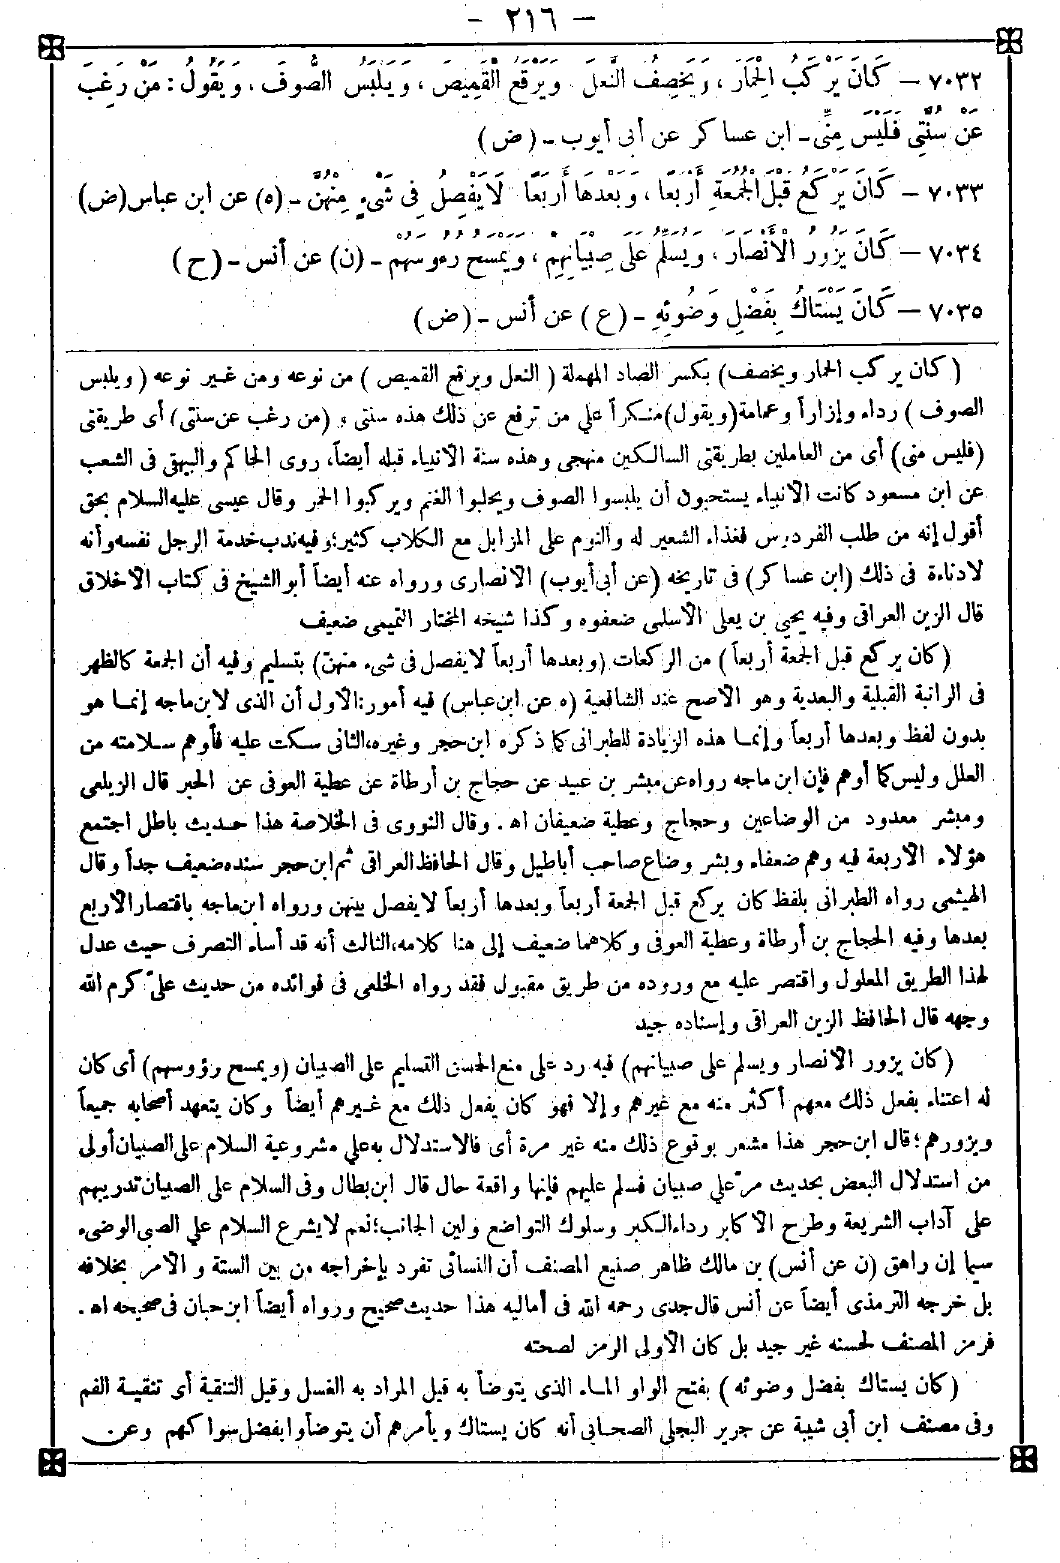 - ٢١٦ -
٧٠٣٢ - كَانَ يَرْكَبُ الْحِمَارَ ، وَيَخْصِفُ النَّعْلَ وَيَرْقَعُ الْقَمِيصَ ، وَيَلْبَسُ الصُّوفَ ، وَيَقُولُ : مَنْ رَغِبَ
عَنْ سُنَّتِى فَلَيْسَ مِنِّى - ابن عساكر عن أبى أيوب - (ض)
٧٠٣٣ - كَانَ يَرْكَعُ قَبْلَ الْجُمُعَةِ أَرْبَعًا ، وَبَعْدَهَا أَرْبَعًا لَا يَفْصِلُ فِى شَىْءٍ مِنْهُنَّ - (ه) عن ابن عباس (ض)
٧٠٣٤ - كَانَ يَزُورُ الْأَنْصَارَ ، وَيُسَلِّمُ عَلَى صِبْيَانِهِمْ ، وَيَمْسَحُ رءُوسَهُمْ - (ن) عن أنس - (ح)
٧٠٣٥ - كَانَ يَسْتَاكُ بِفَضْلِ وَضُوئِهِ - (ع) عن أنس - (ض)
(كان يركب الحمار ويخصف) بكسر الصاد المهملة (النعل ويرقع القميص) من نوعه ومن غير نوعه (ويلبس
الصوف) رداء وإزاراً وعمامة (ويقول) منكراً على من ترفع عن ذلك هذه سنتى و (من رغب عن سنتى) أى طريقتى
(فليس منى) أى من العاملين بطريقتى السالكين منهجى وهذه سنة الأنبياء قبله أيضاً، روى الحاكم والبيهقى فى الشعب
عن ابن مسعود كانت الأنبياء يستحبون أن يلبسوا الصوف ويحلبوا الغنم ويركبوا الحمر وقال عيسى عليه السلام بحق
أقول إنه من طلب الفردوس فغذاء الشعير له والنوم على المزابل مع الكلاب كثير؛ وفيه ندب خدمة الرجل نفسه وأنه
لا دناءة فى ذلك (ابن عساكر) فى تاريخه (عن أبى أيوب) الأنصارى ورواه عنه أيضاً أبو الشيخ فى كتاب الأخلاق
قال الزين العراقى وفيه يحيى بن يعلى الأسلمى ضعفوه وكذا شيخه المختار التميمى ضعيف
(كان يركع قبل الجمعة أربعاً) من الركعات (وبعدها أربعاً لا يفصل فى شىء منهنّ) بتسليم وفيه أن الجمعة كالظهر
فى الراتبة القبلية والبعدية وهو الأصح عند الشافعية (ه عن ابن عباس) فيه أمور: الأول أن الذى لابن ماجه إنما هو
بدون لفظ وبعدها أربعاً وإنما هذه الزيادة للطبرانى كما ذكره ابن حجر وغيره، الثانى سكت عليه فأوهم سلامته من
العلل وليس كما أوهم فإن ابن ماجه رواه عن مبشر بن عبيد عن حجاج بن أرطاة عن عطية العوفى عن الحبر قال الزيلعى
ومبشر معدود من الوضاعين وحجاج وعطية ضعيفان اه. وقال النووى فى الخلاصة هذا حديث باطل اجتمع
هؤلاء الأربعة فيه وهم ضعفاء وبشر وضاع صاحب أباطيل وقال الحافظ العراقى ثم ابن حجر سنده ضعيف جداً وقال
الهيثمى رواه الطبرانى بلفظ كان يركع قبل الجمعة أربعاً وبعدها أربعاً لا يفصل بينهن ورواه ابن ماجه باقتصار الأربع
بعدها وفيه الحجاج بن أرطاة وعطية العوفى وكلاهما ضعيف إلى هنا كلامه، الثالث أنه قد أساء التصرف حيث عدل
لهذا الطريق المعلول واقتصر عليه مع وروده من طريق مقبول فقد رواه الخلعى فى فوائده من حديث علىّ كرم الله
وجهه قال الحافظ الزين العراقى وإسناده جيد
(كان يزور الأنصار ويسلم على صبيانهم) فيه رد على منع الحسن التسليم على الصبيان (ويمسح رؤوسهم) أى كان
له اعتناء بفعل ذلك معهم أكثر منه مع غيرهم وإلا فهو كان يفعل ذلك مع غيرهم أيضاً وكان يتعهد أصحابه جميعاً
ويزورهم؛ قال ابن حجر هذا مشعر بوقوع ذلك منه غير مرة أى فالاستدلال به على مشروعية السلام على الصبيان أولى
من استدلال البعض بحديث مرّ على صبيان فسلم عليهم فإنها واقعة حال قال ابن بطال وفى السلام على الصبيان تدريبهم
على آداب الشريعة وطرح الأكابر رداء الكبر وسلوك التواضع ولين الجانب؛ نعم لا يشرع السلام على الصبى الوضىء
سيما إن راهق (ن عن أنس) بن مالك ظاهر صنيع المصنف أن النسائى تفرد بإخراجه من بين الستة والأمر بخلافه
بل خرجه الترمذى أيضاً عن أنس قال جدى رحمه الله فى أماليه هذا حديث صحيح ورواه أيضاً ابن حبان فى صحيحه اه.
فرمز المصنف لحسنه غير جيد بل كان الأولى الرمز لصحته
(كان يستاك بفضل وضوئه) بفتح الواو الماء الذى يتوضأ به قيل المراد به الغسل وقيل التنقية أى تنقية الفم
وفى مصنف ابن أبى شيبة عن جرير البجلى الصحابى أنه كان يستاك ويأمرهم أن يتوضأوا بفضل سواكهم وعن